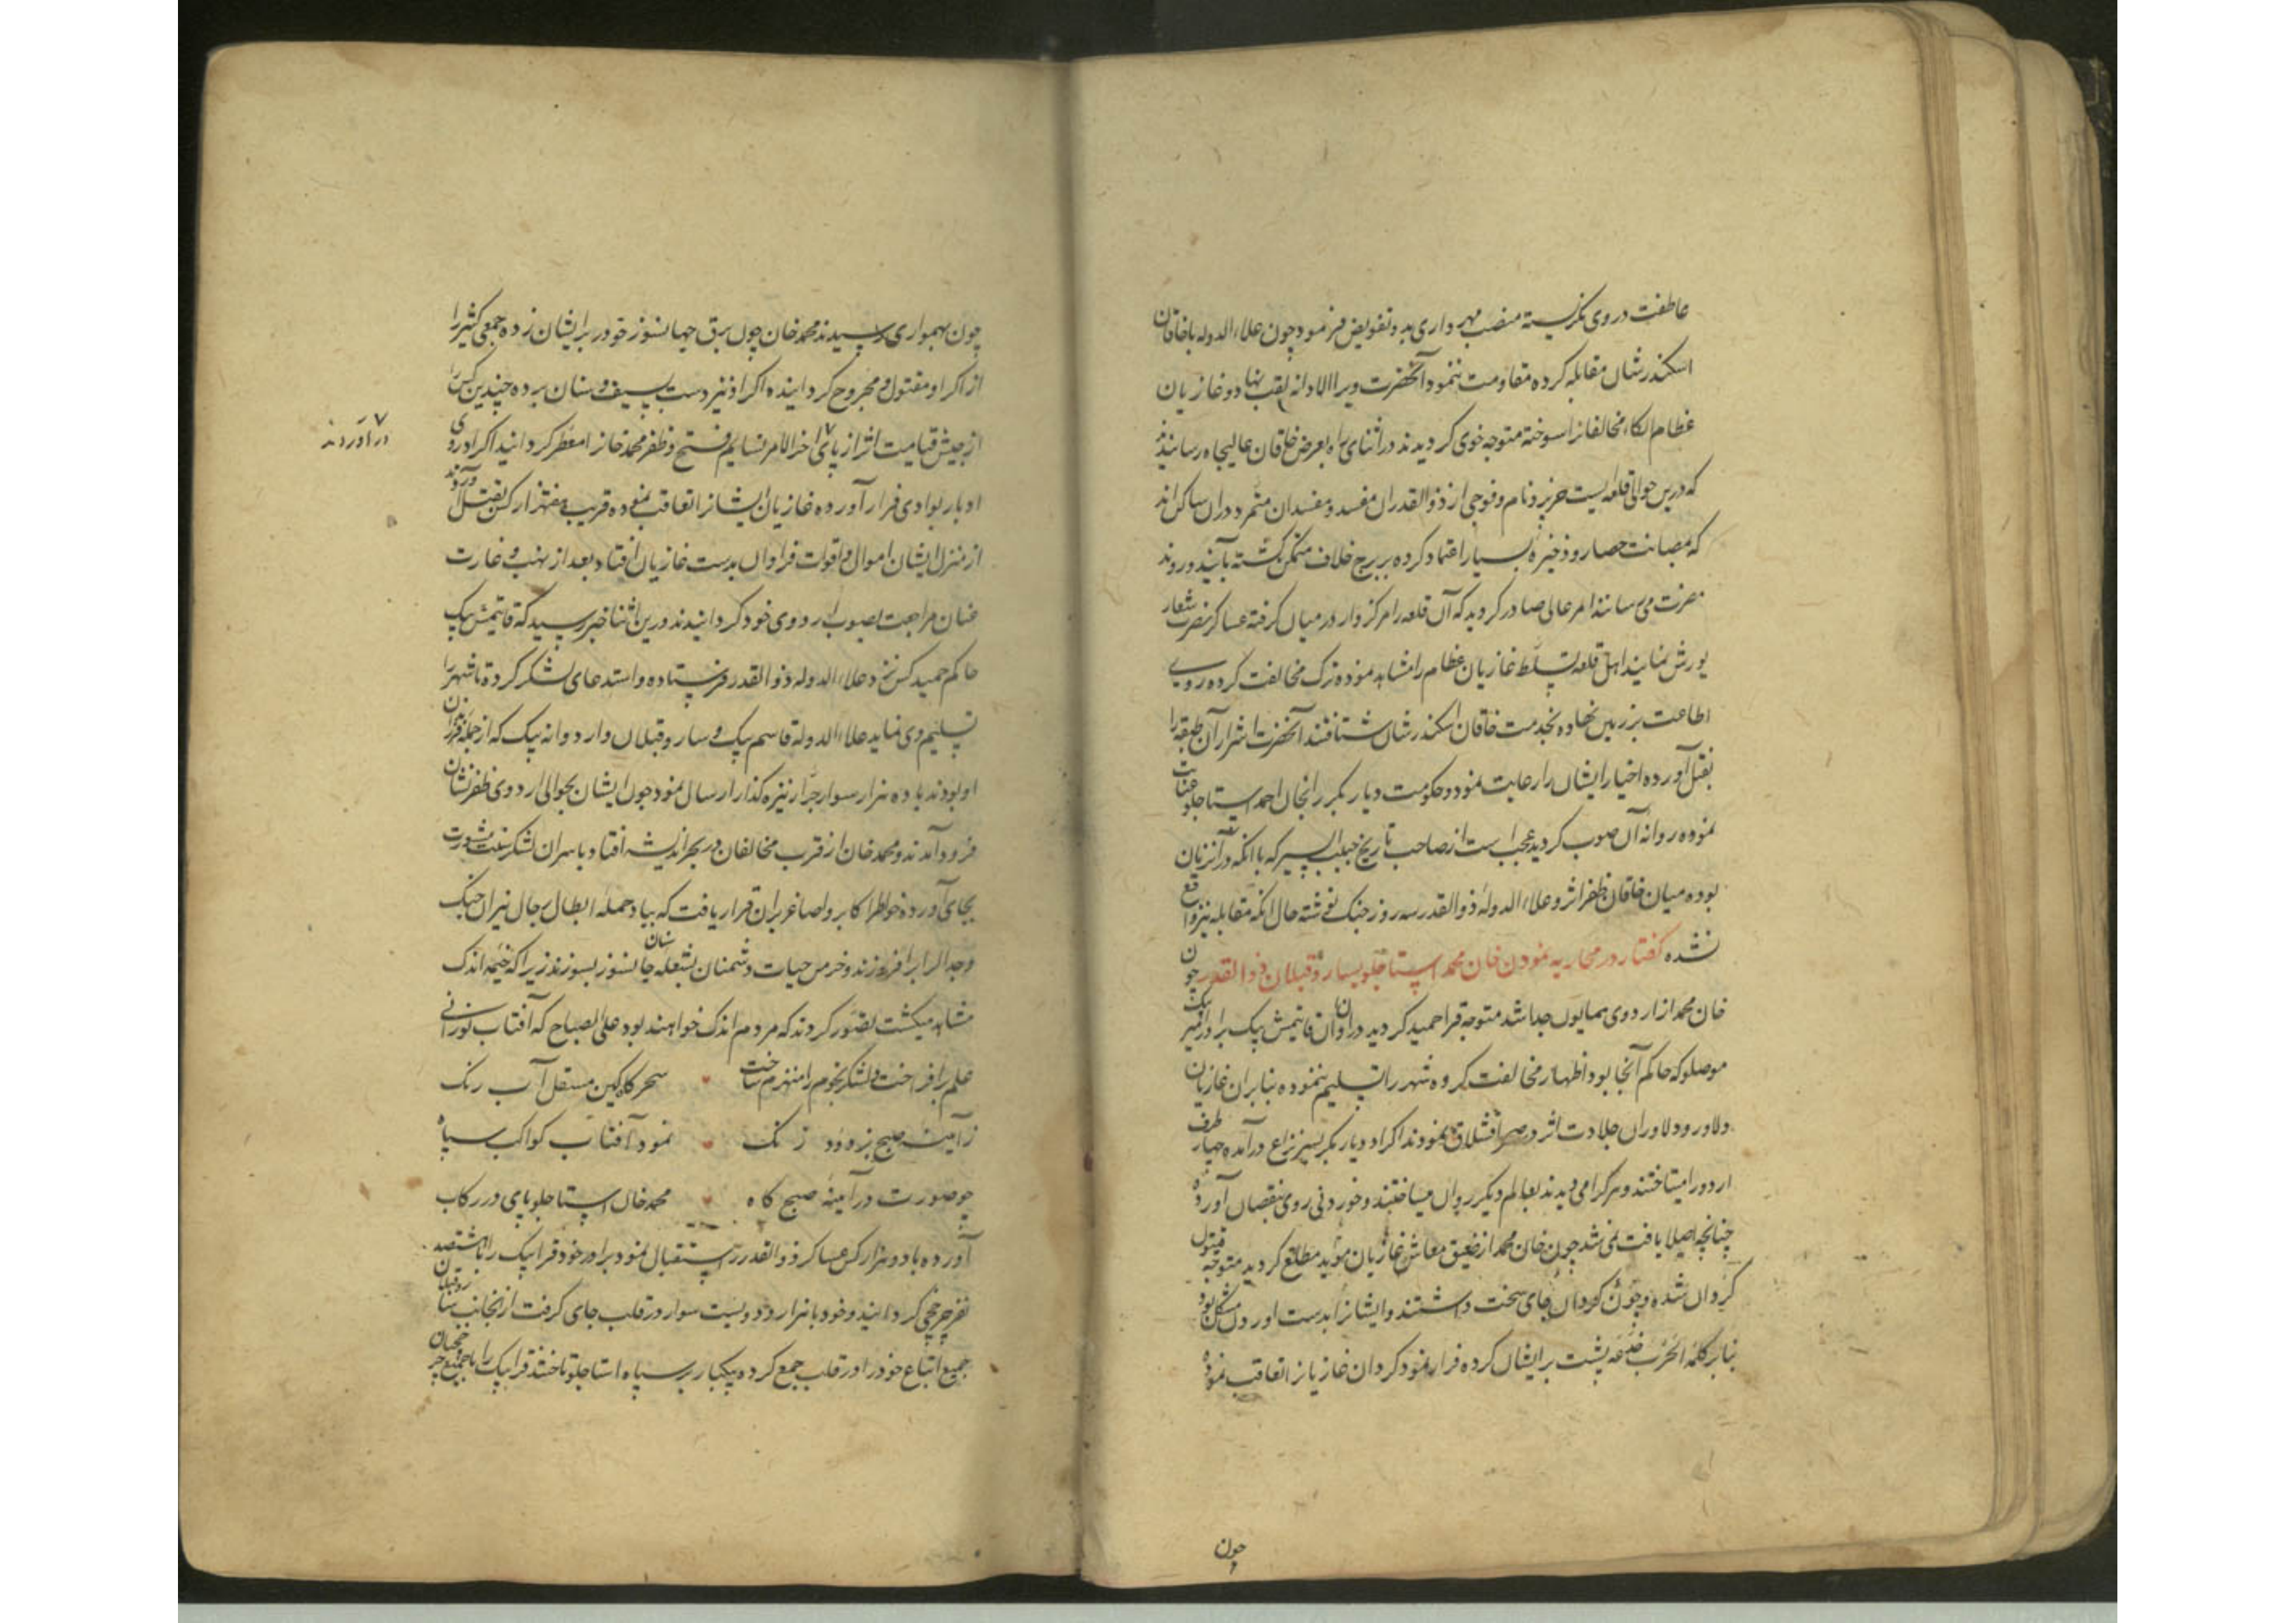 عاطفت در وی نگریسته منصب مهرداری بدو تفویض فرمود چون علاء الدوله باخاقان
اسکندرشان مقابله کرده مقاومت ننمود آنحضرت ویرا الادانه لقب نهاد و غازیان
عظام الکاء مخالفانرا سوخته متوجه خوی کردیدند در اثنای راه بعرض خاقان عالیجاه رسانیدند
که درین حوالی قلعه ایست خرپرد نام و فوجی از ذوالقدران مفسد و مفسدان متمرد دران ساکن اند
که بمصانت حصار و ذخیرهٔ بسیار اعتماد کرده بر برج خلاف متمکن کشته بآیند و روند
مضرت می رسانند امر عالی صادر کردید که آن قلعه را مرکزوار درمیان کرفته عساکر نصرت شعار
یورش نمایند اهل قلعه تسلط غازیان عظام را مشاهده نموده ترک مخالفت کرده روی
اطاعت بر زمین نهاده بخدمت خاقان اسکندرشان شتافتند آنحضرت اشرار آن طبقه را
بقتل آورده اخیار ایشان را رعایت نمود و حکومت دیاربکر را بخان احمد استاجلو عنایت
نموده روانه آن صوب کردید عجب است از صاحب تاریخ حبیب السیر که با انکه در آنزمان
بوده میان خاقان ظفر اثر و علاء الدوله ذوالقدر سه روز جنک نوشته حال انکه مقابله نیز واقع
نشده کفتار در محاربه نمودن خان محمد استاجلو بسارو قپلان ذوالقدر چون
خان محمد از اردوی همایون جدا شد متوجه قراحمید کردید دران اوان قایتمش بیک برادر امیر بیک
موصلو که حاکم آنجا بود اظهار مخالفت کرده شهر را تسلیم ننموده بنابران غازیان
دلاور و دلاوران جلادت اثر در صحرا قشلاق نمودند اکراد دیاربکر بسر نزاع درآمده چهار طرف
اردو را میتاختند و هر کرا می دیدند بعالم دیکر روان میساختند و خوردنی روی بنقصان آورده
چنانچه اصلا یافت نمی شد چون خان محمد از ضیق معاش غازیان مؤید مطلع کردید متوجه
کردان شده و چون کردان جای سخت داشتند و ایشانرا بدست آوردن مشکل بود
بنابر کلمه الحرب خدعة پشت بر ایشان کرده فرار نمود کردان غازیانرا تعاقب نموده
چون
چون بهمواری رسیدند محمد خان چون برق جهانسوز خود را بر ایشان زده جمعی کثیر را
از اکراد مقتول و مجروح کردانیده اکراد نیز دست بسیف و سنان برده چندین کس را
از جیش قیامت اثر از پای اخر الامر نسایم فتح و ظفر محمد خانرا معطر کردانید اکراد روی
در آوردند
ادبار بوادی فرار آورده غازیان ایشانرا تعاقب نموده قریب هفتهزار کس بقتل آوردند
از منزل ایشان اموال و اقوات فراوان بدست غازیان افتاد بعد از نهب و غارت
عنان مراجعت بصوب اردوی خود کردانیدند درین اثنا خبر رسید که قایتمش بیک
حاکم حمید کس نزد علاء الدوله ذوالقدر فرستاده و استدعای لشکر کرده تا شهر را
تسلیم وی نماید علاء الدوله قاسم بیک و سارو قپلان و اردوانه بیک که از جمله فرزندان
او بودند با ده هزار سوار جرار نیزه کذار ارسال نمود چون ایشان بحوالی اردوی ظفرنشان
فرود آمدند و محمد خان از قرب مخالفان در بحر اندیشه افتاد با سران لشکر سنت مشورت
بجای آورده خواطر اکابر و اصاغر بران قرار یافت که بباد حمله ابطال رجال نیران جنک
و جدال را برافروزند و خرمن حیات دشمنان بشعله سنان جانسوز بسوزند زیرا که خیمه اندک
مشاهد میکشت تصور کردند که مردم اندک خواهند بود علی الصباح که آفتاب نورانی
علم برافراخت و لشکر نجوم را منهزم ساخت سحرکاه کین صیقل آب رنک
ز آینه صبح بزدود زنک نمود آفتاب کواکب سپاه
چو صورت در آینهٔ صبح کاه محمد خان استاجلو پای در رکاب
آورده با دو هزار کس عساکر ذوالقدر را استقبال نمود برادر خود قرابیک را با هشتصد
نفر چرخچی کردانید و خود با هزار و دویست سوار در قلب جای کرفت از آنجانب سارو قپلان
جمیع اتباع خود را در قلب جمع کرده بیکبار بر سپاه استاجلو تاختند قرابیک را با جمیع چرخچیان